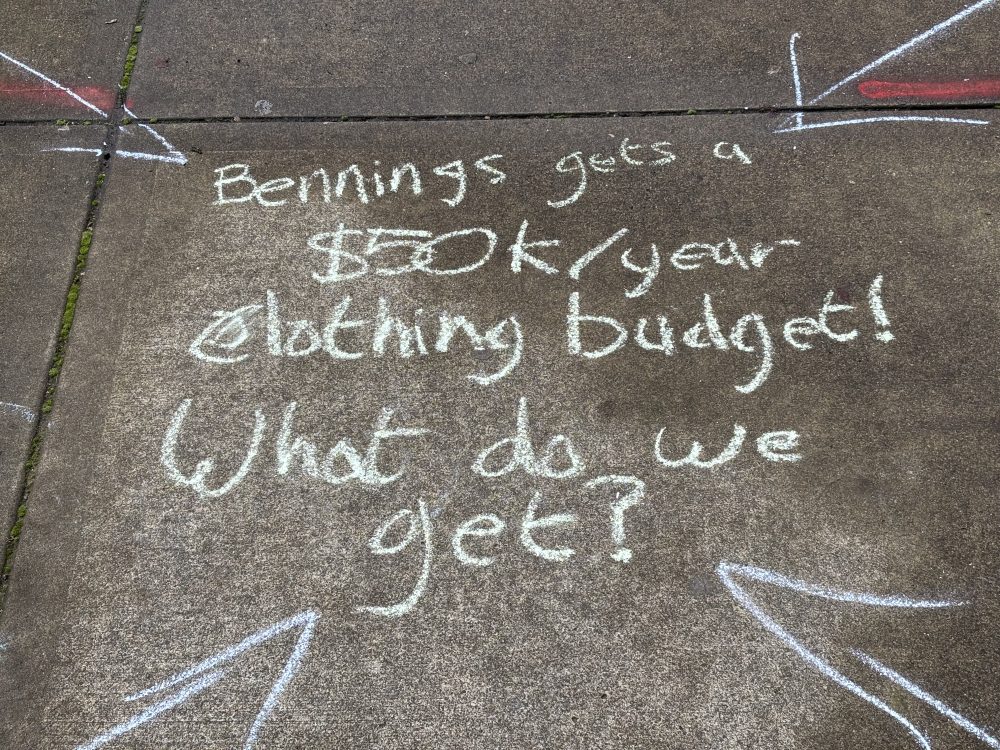 Bennings gets a
$50k/year
Clothing budget!
What do we
get?